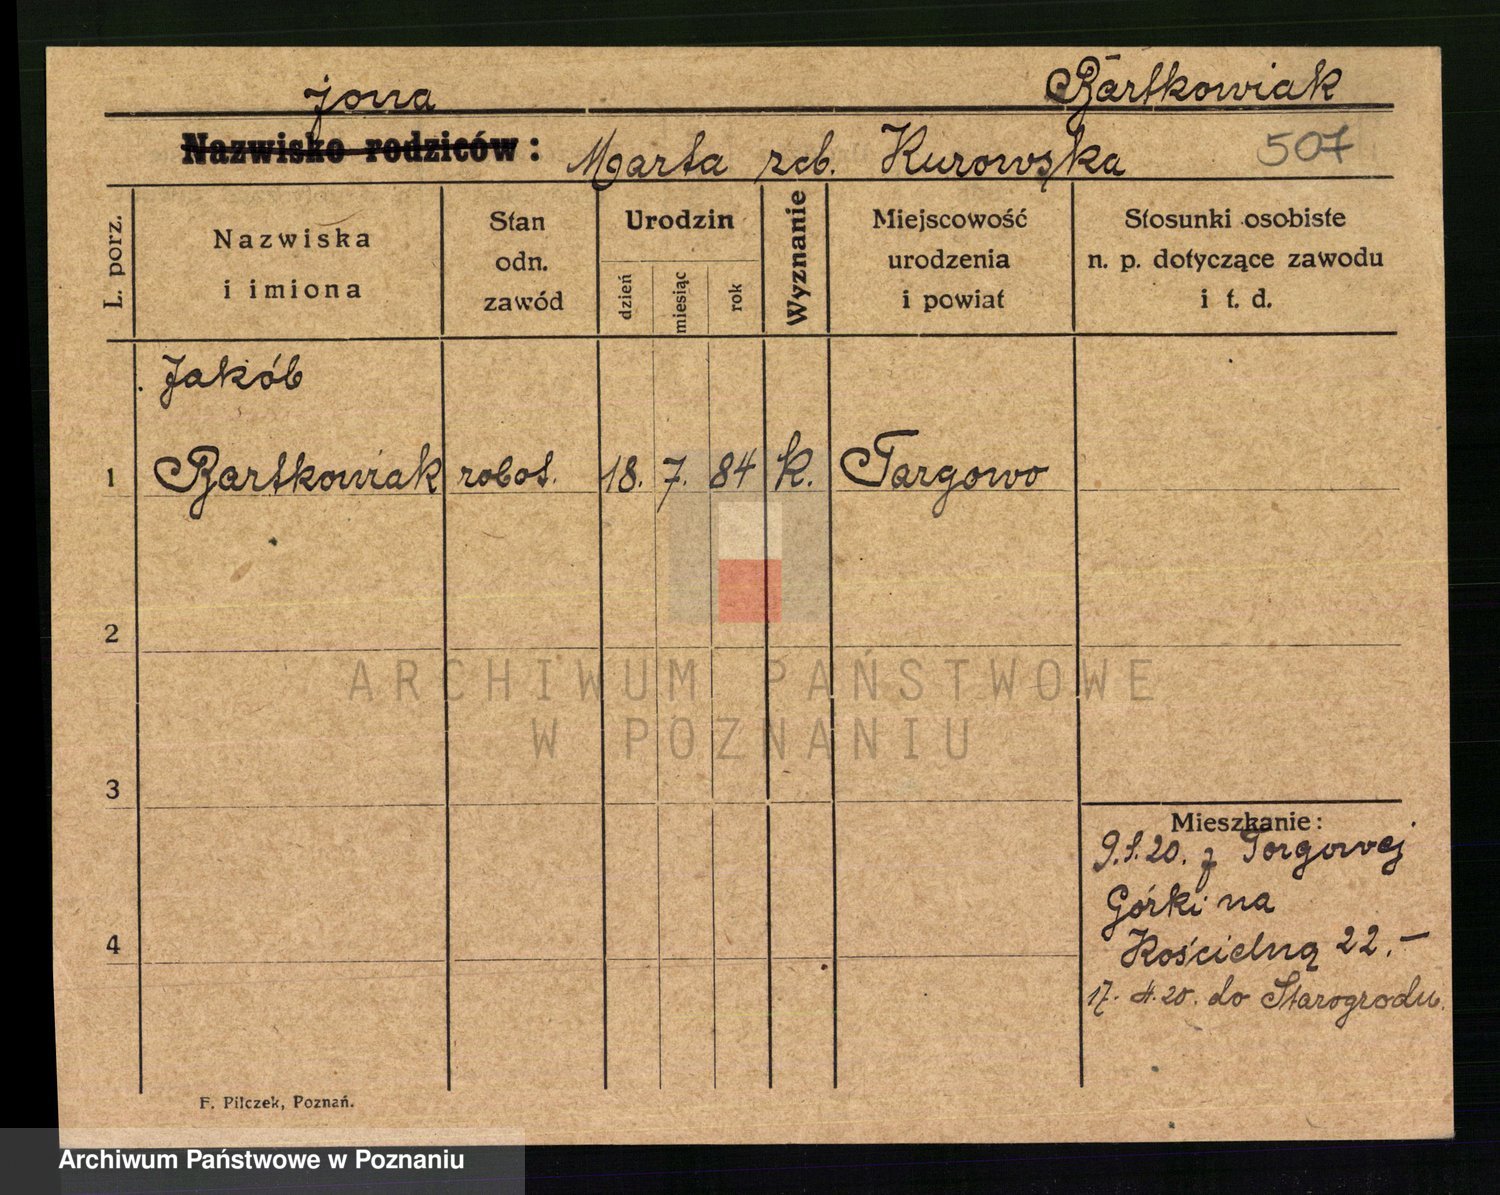 żona Bartkowiak
Nazwisko rodziców: Marta zob. Kurowska 507
L. porz.
Nazwiska
i imiona
Stan
odn.
zawód
Urodzin
dzień
miesiąc
rok
Wyznanie
Miejscowość
urodzenia
i powiat
Stosunki osobiste
n. p. dotyczące zawodu
i t. d.
Jakób
1 Bartkowiak robot. 18. 7. 84 k. Targowo
2
3
4
Mieszkanie:
9.1.20. z Torgowej
Górki na
Kościelną 22.-
17. 4. 20. do Starogrodu.
F. Pilczek, Poznań.
ARCHIWUM PAŃSTWOWE
W POZNANIU
Archiwum Państwowe w Poznaniu